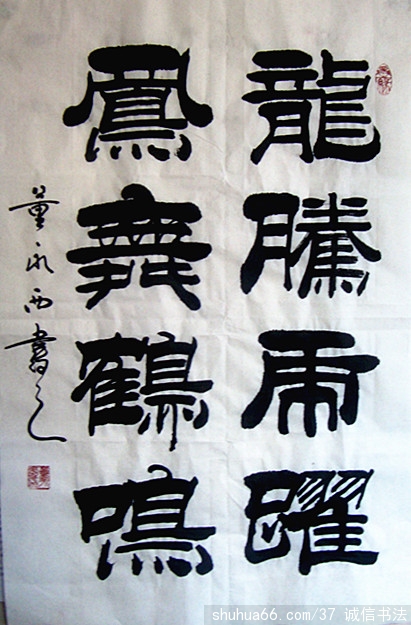 龍騰虎躍
鳳舞鶴鳴
董永西書之
shuhua66.com/37 诚信书法